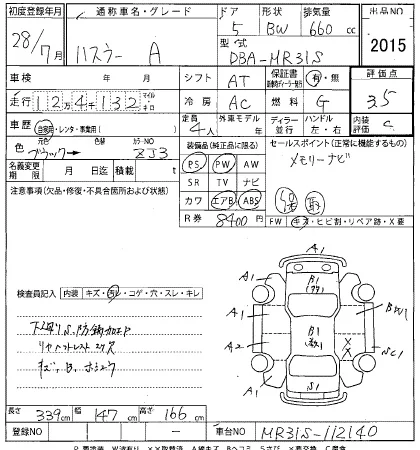 初度登録年月 通称車名・グレード ドア 形状 排気量 出品NO
28/7月 ハスラー A 5 BW 660 cc 2015
型式 DBA-MR31S
車検 年 月 シフト AT 保証書 有・無 評価点
走行 12万4千132 マイル キロ 冷房 AC 燃料 G 3.5
車歴 自家用・レンタ・事業用( ) 定員 4人 外車モデル 年 ディーラー 並行 ハンドル 左・右 内装 C
色 元色 ブラック→ 色替 カラーNO ZJ3 装備品(純正品に限る) セールスポイント(正常に機能するもの)
PS PW AW メモリーナビ
名義変更期限 月 日 迄 積載 kg SR TV ナビ
注意事項(欠品・修復・不具合箇所および状態) カワ エアB ABS
R券 8400円 FW キズ・ヒビ割・リペア跡・X要
検査員記入 内装 キズ・汚レ・コゲ・穴・スレ・キレ
下廻りS、防錆加工P
キズ、B、ホシュウ
A1
A1 B1 A1
A1 B1
A2 SC1
A1 S1 A1
長さ 339 cm 幅 147 cm 高さ 166 cm
登録NO 車台NO MR31S-112140